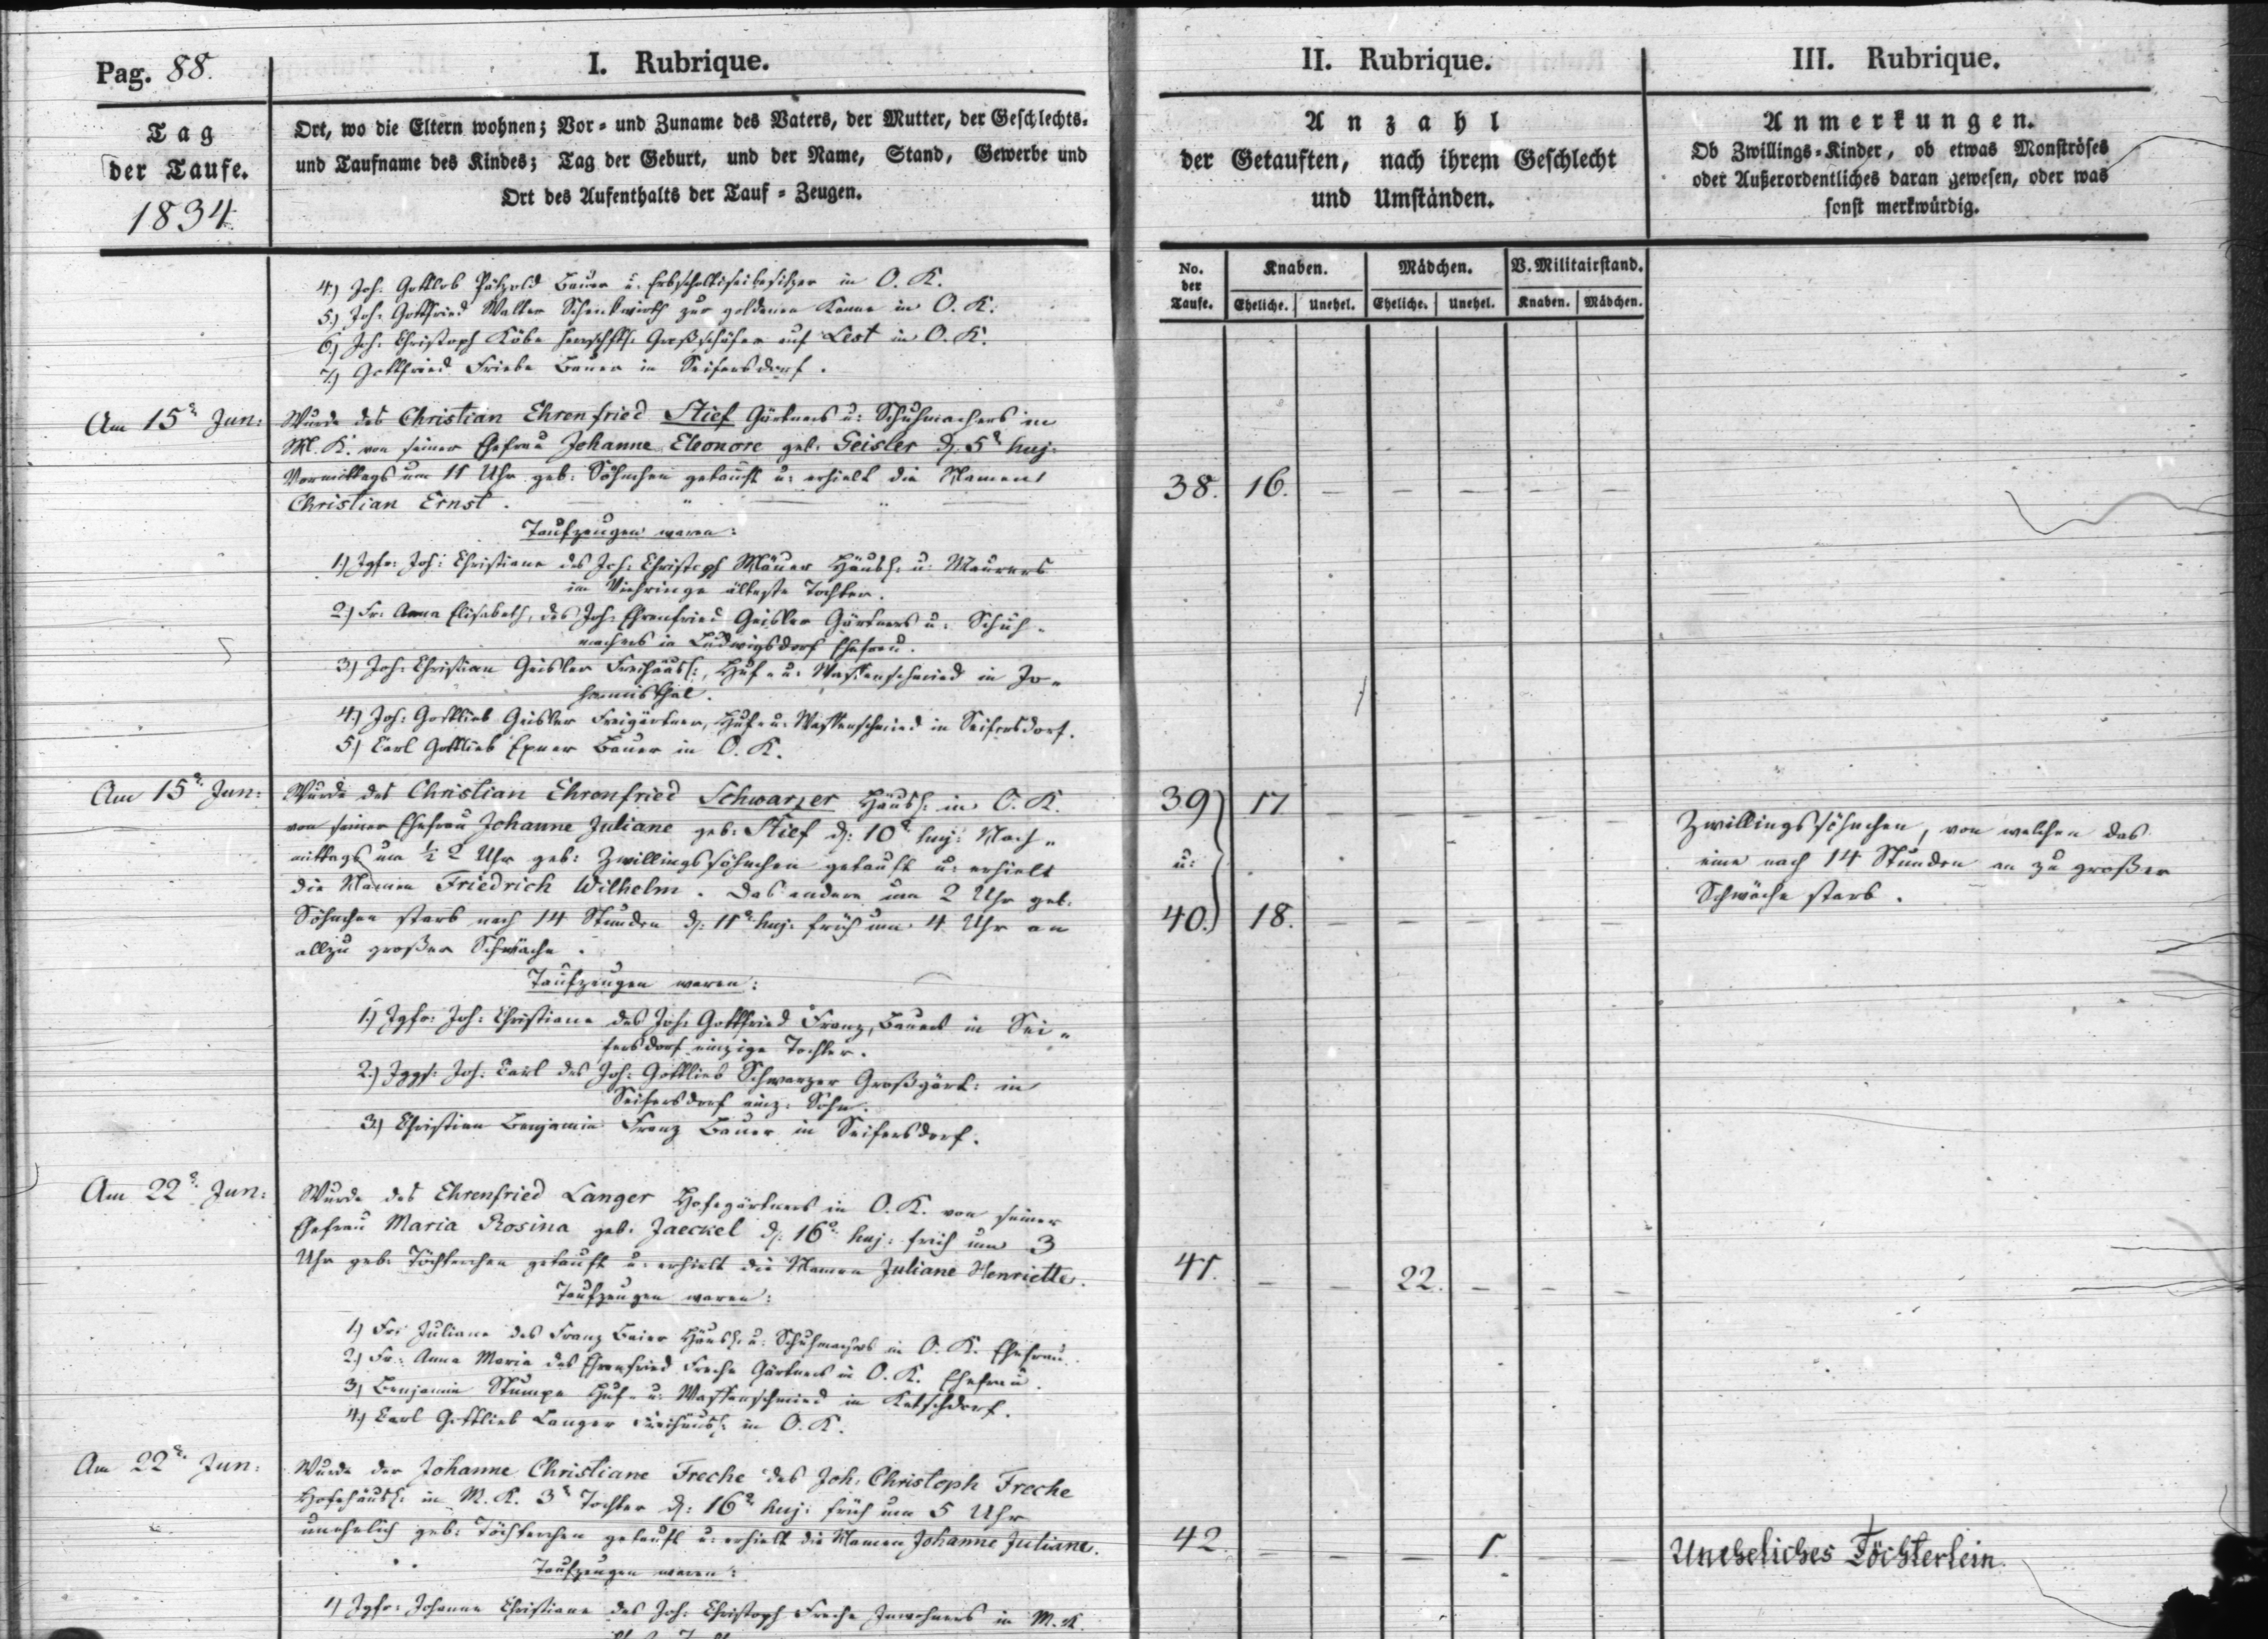 Pag. 88.
I. Rubrique.
II. Rubrique.
III. Rubrique.
Tag
der Taufe.
1834.
Ort, wo die Eltern wohnen; Vor- und Zuname des Vaters, der Mutter, der Geschlechts-
und Taufname des Kindes; Tag der Geburt, und der Name, Stand, Gewerbe und
Ort des Aufenthalts der Tauf-Zeugen.
Anzahl
der Getauften, nach ihrem Geschlecht
und Umständen.
Anmerkungen.
Ob Zwillings-Kinder, ob etwas Monströses
oder Außerordentliches daran gewesen, oder was
sonst merkwürdig.
No.
der
Taufe.
Knaben.
Mädchen.
V. Militairstand.
Eheliche. Unehel. Eheliche. Unehel. Knaben. Mädchen.
4.) Joh. Gottlob Pätzold Bauer u. Erbscholtiseibesitzer in O. K.
5.) Joh: Gottfried Walter Schenkwirth zur goldenen Kanne in O. K.
6.) Joh: Christoph Köbe herrschftl: Großschäfer auf Lest in O. K.
7.) Gottfried Friebe Bauer in Seifersdorf.
Am 15t Jun:
Wurde des Christian Ehrenfried Stief Gärtners u: Schuhmachers in
M. K. von seiner Ehefrau Johanne Eleonore geb. Geisler d. 5t huj.
Vormittags um 11 Uhr geb: Söhnchen getauft u: erhielt die Namen
Christian Ernst.
38. 16. – – – – –
Taufzeugen waren:
1.) Jgfr: Joh: Christiane des Joh: Christoph Mäuer Häusl: u: Maurers
im Viehringe älteste Tochter.
2.) Fr: Anna Elisabeth, des Joh: Ehrenfried Geisler Gärtners u: Schuh-
machers in Ludwigsdorf Ehefrau.
3.) Joh: Christian Geisler Freihäusl:, Huf- u: Waffenschmied in Jo-
hannisthal.
4.) Joh: Gottlieb Geisler Freigärtner, Huf- u: Waffenschmied in Seifersdorf.
5.) Carl Gottlieb Exner Bauer in O. K.
Am 15t Jun:
Wurde des Christian Ehrenfried Schwarzer Häusl: in O. K.
von seiner Ehefrau Johanne Juliane geb: Stief d: 10t huj: Nach-
mittags um ½ 2 Uhr geb: Zwillingssöhnchen getauft u: erhielt
die Namen Friedrich Wilhelm. Das andere um 2 Uhr geb.
Söhnchen starb nach 14 Stunden d: 11t huj: früh um 4 Uhr an
allzu großer Schwäche.
39 17 – – – – –
u:
40. 18. – – – – –
Zwillingssöhnchen, von welchen das
eine nach 14 Stunden an zu großer
Schwäche starb.
Taufzeugen waren:
1.) Jgfr: Joh: Christiane des Joh: Gottfried Franz, Bauers in Sei-
fersdorf einzige Tochter.
2.) Jggs: Joh: Carl des Joh: Gottlieb Schwarzer Großgärt: in
Seifersdorf einz: Sohn.
3.) Christian Benjamin Franz Bauer in Seifersdorf.
Am 22t Jun:
Wurde des Ehrenfried Langer Hofegärtners in O. K. von seiner
Ehefrau Maria Rosina geb. Jaeckel d: 16t huj: früh um 3
Uhr geb: Töchterchen getauft u: erhielt die Namen Juliane Henriette.
41. – – 22. – – –
Taufzeugen waren:
1.) Fr: Juliane des Franz Beier Häusl: u: Schuhmachers in O. K. Ehefrau.
2.) Fr: Anna Maria des Ehrenfried Freche Gärtners in O. K. Ehefrau.
3.) Benjamin Stumpe Huf- u: Waffenschmied in Ketschdorf.
4.) Carl Gottlieb Langer Freihäusl: in O. K.
Am 22t Jun:
Wurde der Johanne Christiane Freche des Joh: Christoph Freche
Hofehäusl: in M. K. 3t Tochter d: 16t huj: früh um 5 Uhr
unehelich geb: Töchterchen getauft u: erhielt die Namen Johanne Juliane.
42. – – – 1. – –
Uneheliches Töchterlein.
Taufzeugen waren:
1.) Jgfr: Johanne Christiane des Joh: Christoph Freche Inwohners in M. K.